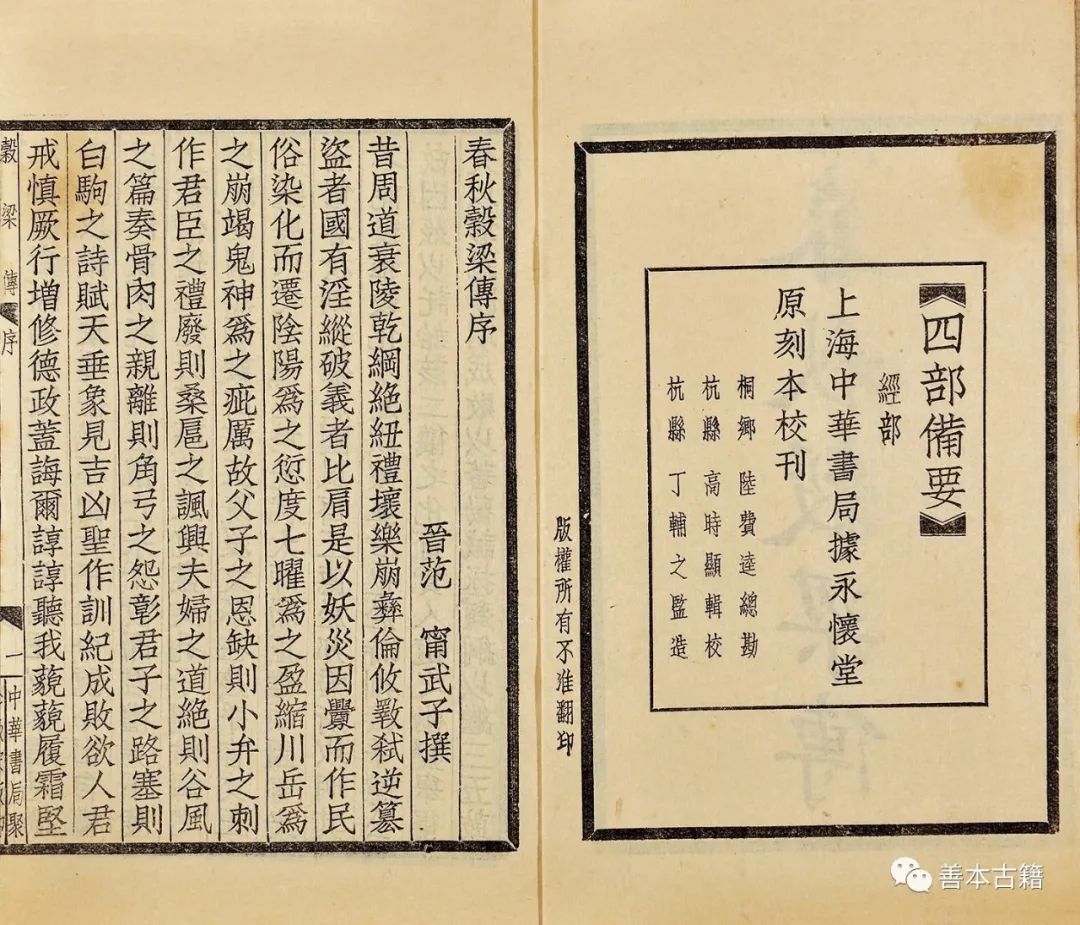 四部備要
經部
上海中華書局據永懷堂
原刻本校刊
桐鄉 陸費逵總勘
杭縣 高時顯輯校
杭縣 丁輔之監造
版權所有不准翻印
春秋穀梁傳序
晉范 甯武子撰
昔周道衰陵乾綱絕紐禮壞樂崩彝倫攸斁弒逆篡
盜者國有淫縱破義者比肩是以妖災因釁而作民
俗染化而遷陰陽爲之愆度七曜爲之盈縮川岳爲
之崩竭鬼神爲之疵厲故父子之恩缺則小弁之刺
作君臣之禮廢則桑扈之諷興夫婦之道絕則谷風
之篇奏骨肉之親離則角弓之怨彰君子之路塞則
白駒之詩賦天垂象見吉凶聖作訓紀成敗欲人君
戒慎厥行增修德政蓋誨爾諄諄聽我藐藐履霜堅
穀梁傳 序
一
中華書局聚
善本古籍